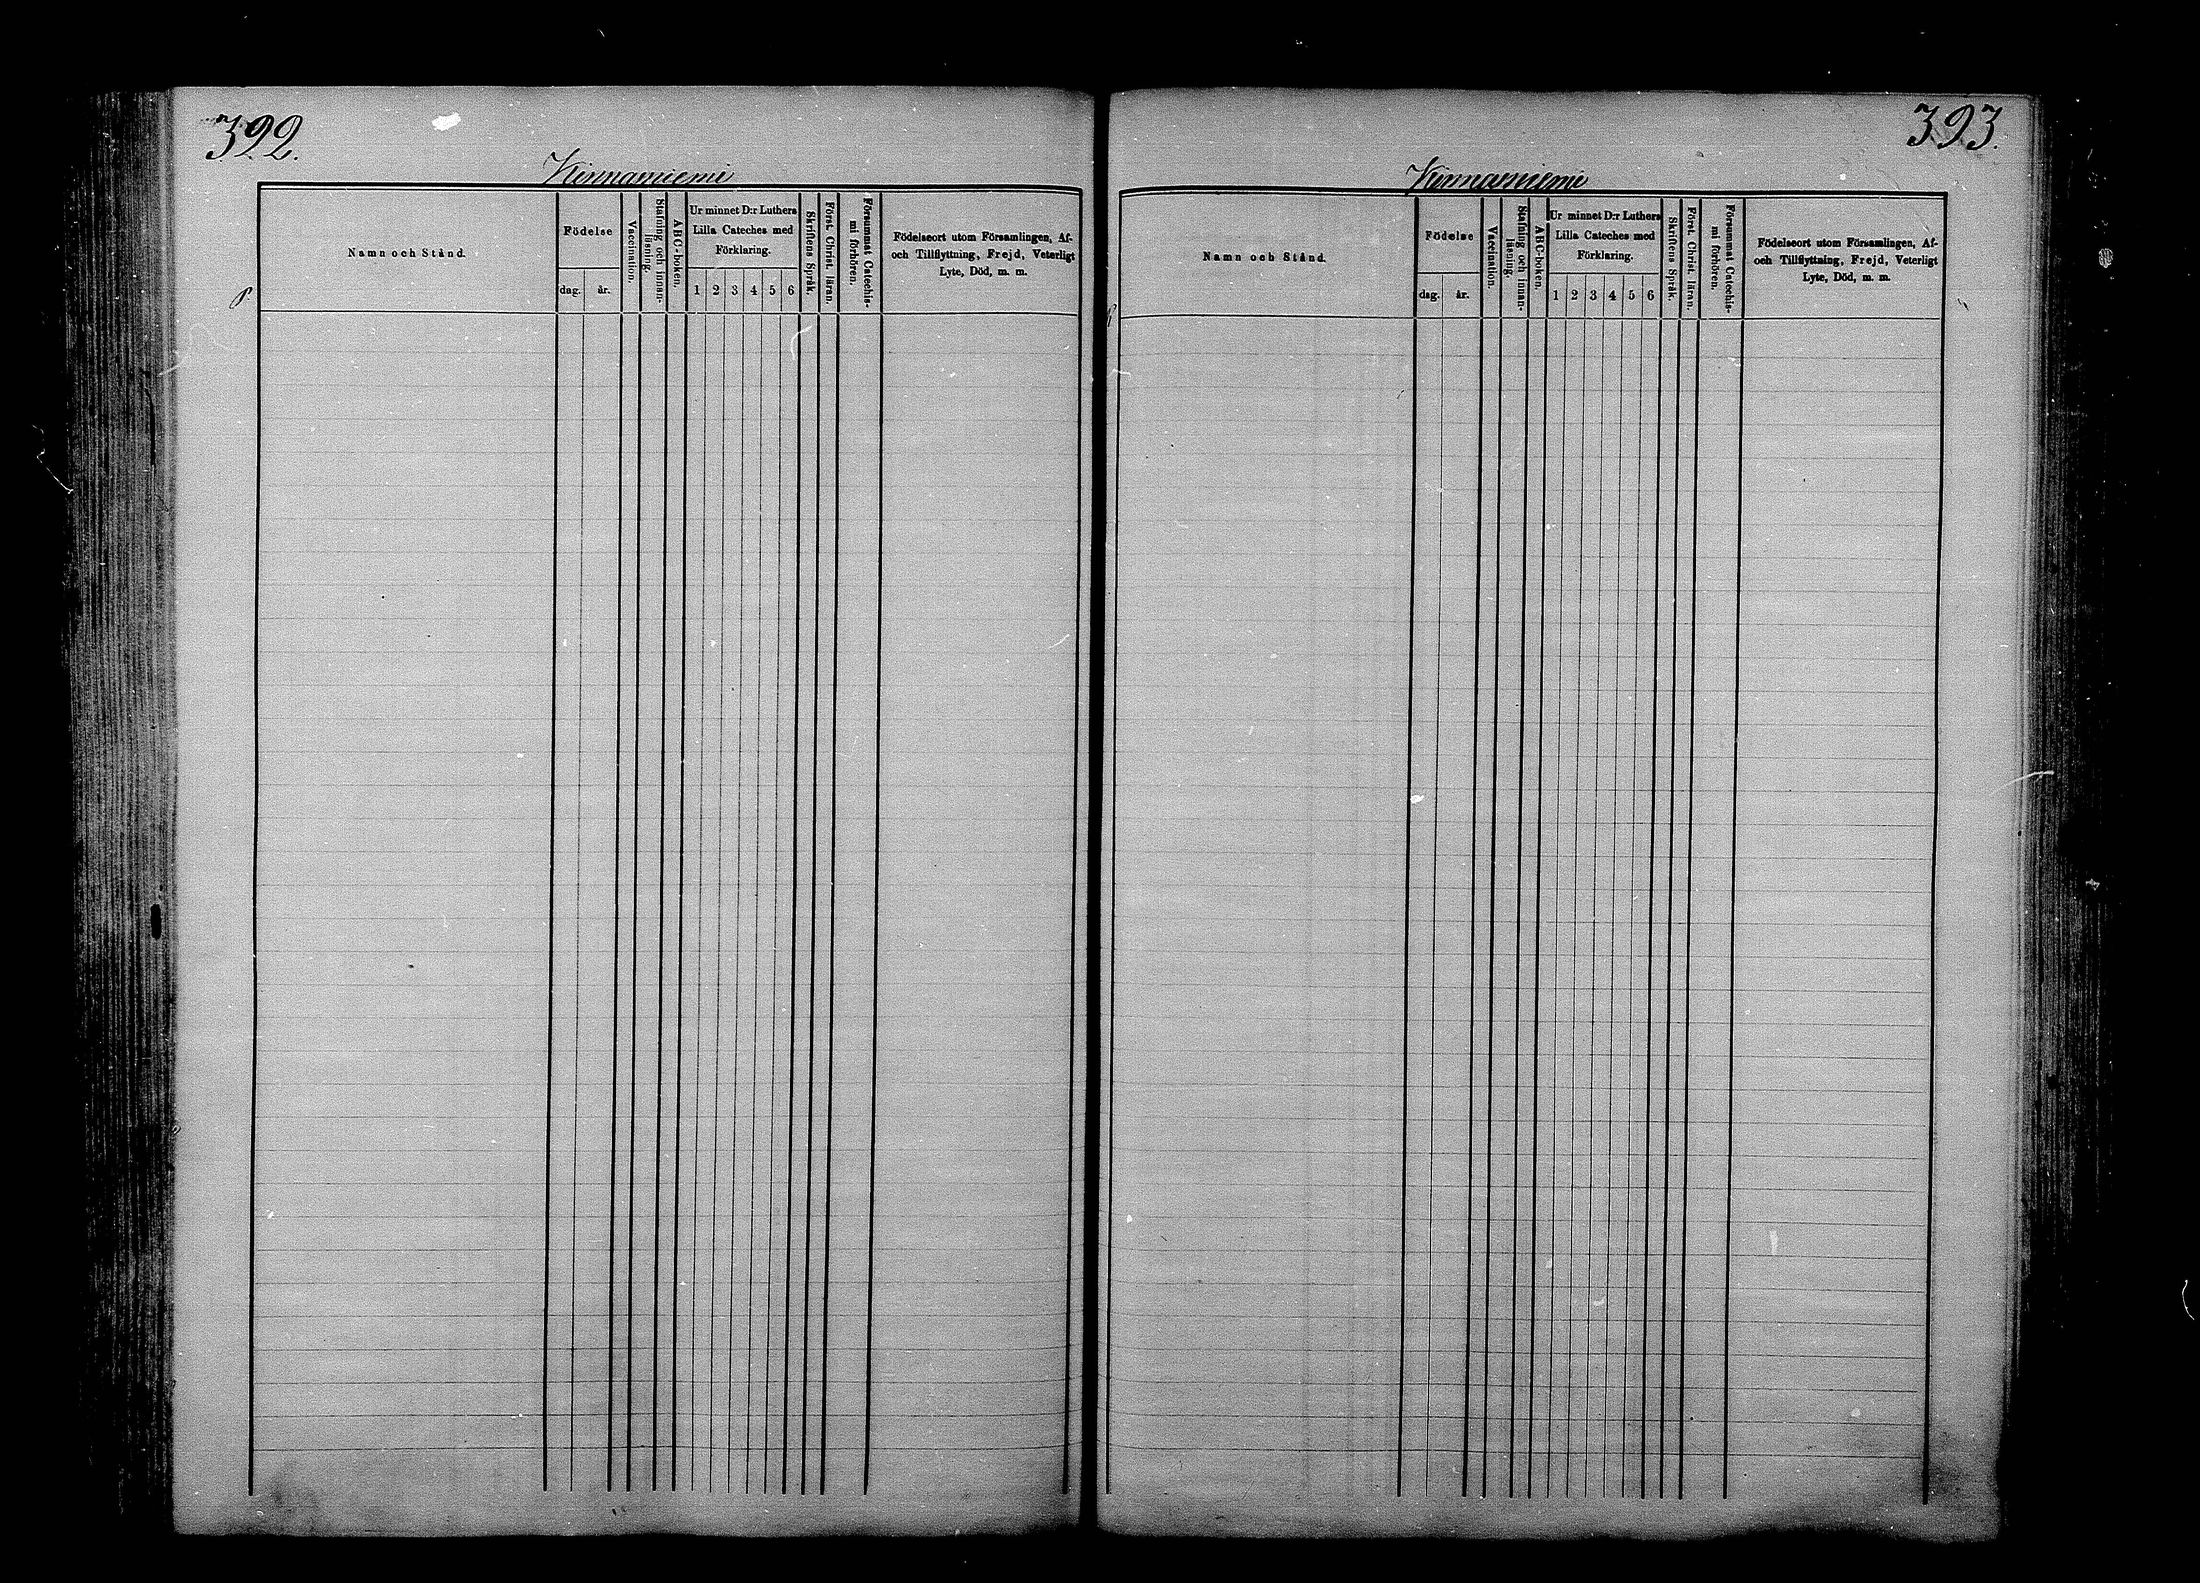 392.
Kinnaniemi
Namn och Stånd.
Födelse
dag. år.
Vaccination.
Stafning och innan-
läsning.
ABC-boken.
Ur minnet D:r Luthers
Lilla Cateches med
Förklaring.
1 2 3 4 5 6
Skriftens Språk.
Först. Christ. läran.
Försummat Catechis-
mi förhören.
Födelseort utom Församlingen, Af-
och Tillflyttning, Frejd, Veterligt
Lyte, Död, m. m.
393.
Kinnaniemi
Namn och Stånd.
Födelse
dag. år.
Vaccination.
Stafning och innan-
läsning.
ABC-boken.
Ur minnet D:r Luthers
Lilla Cateches med
Förklaring.
1 2 3 4 5 6
Skriftens Språk.
Först. Christ. läran.
Försummat Catechis-
mi förhören.
Födelseort utom Församlingen, Af-
och Tillflyttning, Frejd, Veterligt
Lyte, Död, m. m.